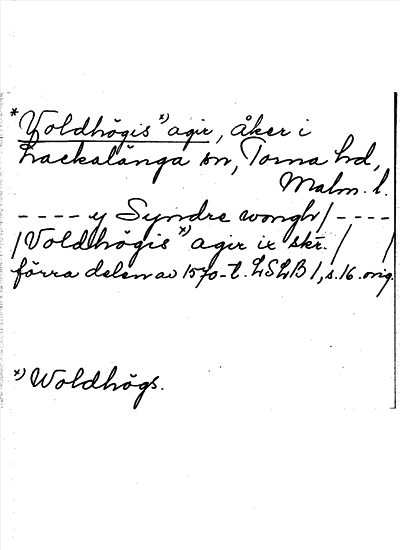 * Voldhögis *) agir, åker i
Lackalänga sn, Torna hd,
Malm. l.
---- y Syndre wongh / ----
/ Voldhögis *) agir ix skr. / /
förra delen av 1570-t. LSLB 1, s. 16. orig.
*) Woldhögs.